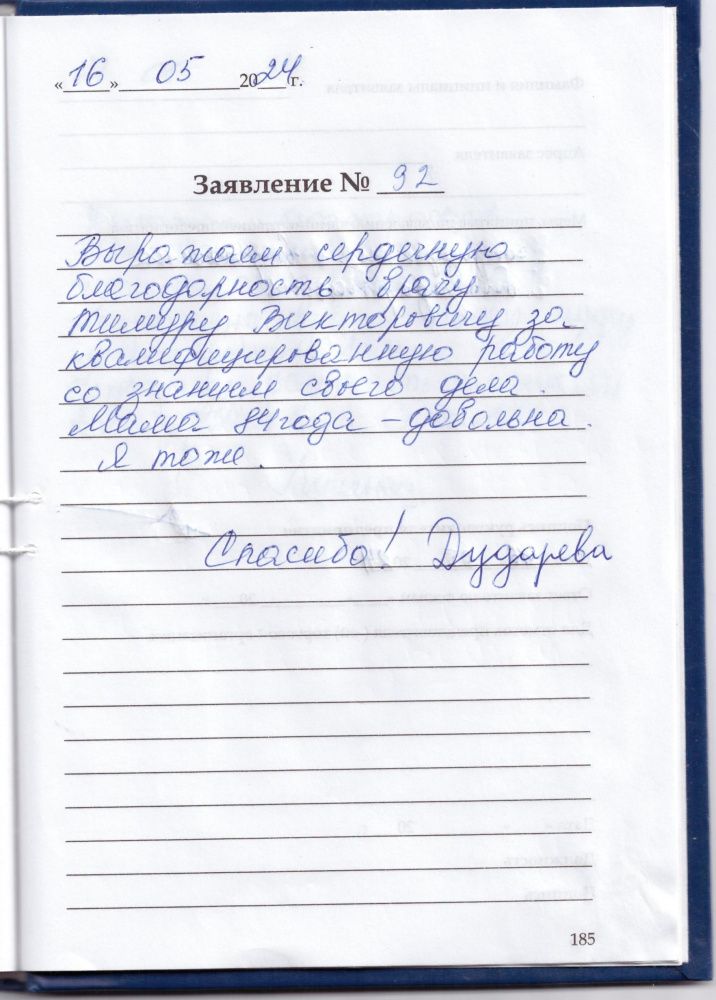 «16» 05 2024 г.
Заявление № 92
Выражаем сердечную
благодарность врачу
Тимуру Викторовичу за
квалифицированную работу
со знанием своего дела.
Мама 84 года – довольна.
Я тоже.
Спасибо! Дударева
185